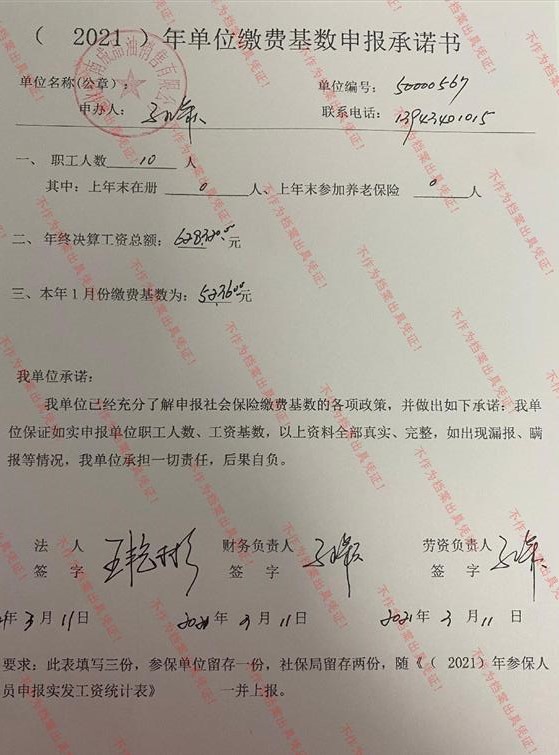 （ 2021 ）年单位缴费基数申报承诺书
单位名称(公章)： 单位编号： 50000567
申办人： 联系电话： 13943401015
一、 职工人数 10 人
其中：上年末在册 0 人、上年末参加养老保险 0 人
二、 年终决算工资总额： 628320.0 元
三、本年1月份缴费基数为： 52360.0 元
我单位承诺：
我单位已经充分了解申报社会保险缴费基数的各项政策，并做出如下承诺：我单
位保证如实申报单位职工人数、工资基数，以上资料全部真实、完整，如出现漏报、瞒
报等情况，我单位承担一切责任，后果自负。
法 人 王艳彬 财务负责人 劳资负责人
签 字 签 字 签 字
年 3 月 11 日 2021 年 3 月 11 日 2021 年 3 月 11 日
要求：此表填写三份，参保单位留存一份，社保局留存两份，随《（ 2021）年参保人
员申报实发工资统计表》 一并上报。
不作为档案出具凭证！